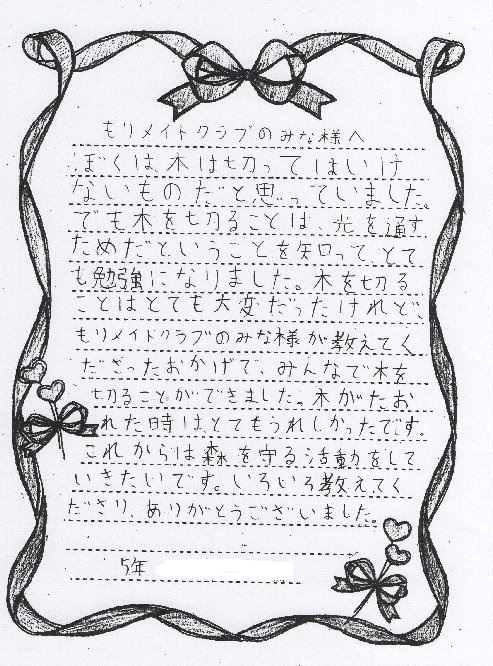 もりメイトクラブのみな様へ
ぼくは、木は切ってはいけ
ないものだと思っていました。
でも木を切ることは、光を通す
ためだということを知って、とて
も勉強になりました。木を切る
ことはとても大変だったけれど
もりメイトクラブのみな様が教えてく
ださったおかげで、みんなで木を
切ることができました。木がたお
れた時はとてもうれしかったです。
これからは森を守る活動をして
いきたいです。いろいろ教えてく
ださり、ありがとうございました。
5年